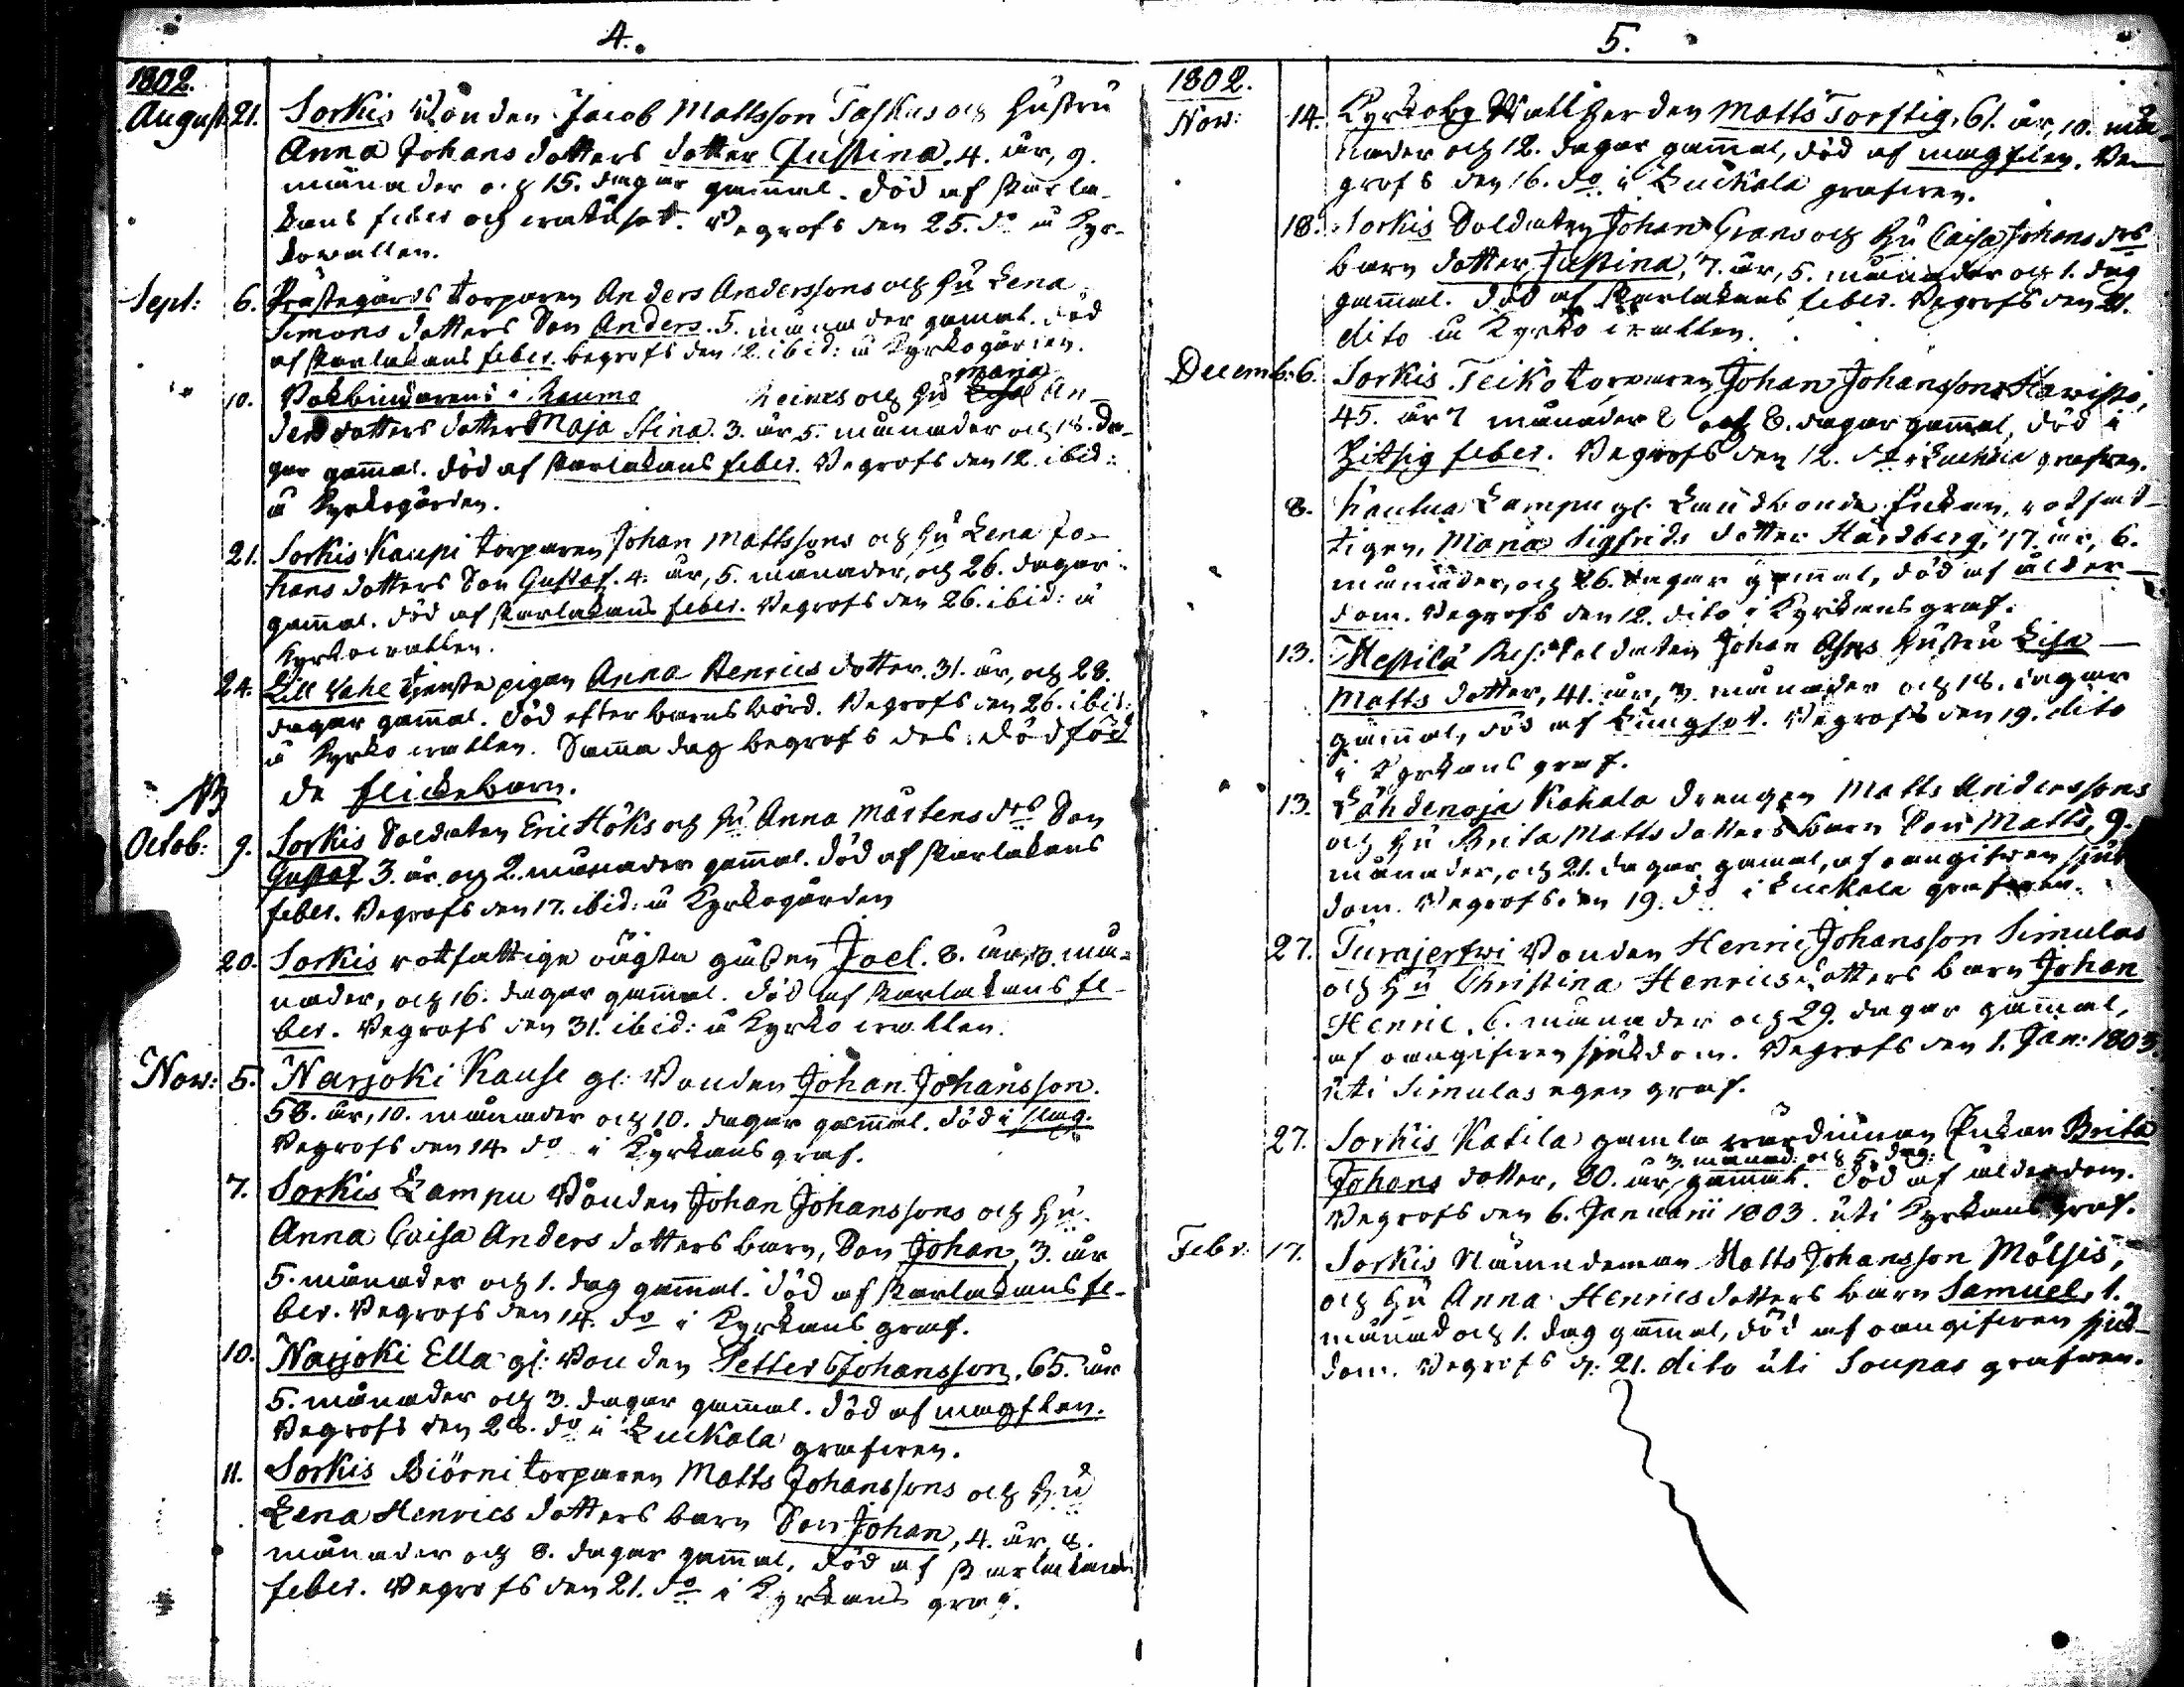 4.
1802.
August. 21. Sorkis Bonden Jacob Mattsson Taskus och hustru
Anna Johans dotters dotter Justina. 4. år, 9.
månader och 15. dagar gammal. Död af skarla-
kans feber och bråkasot. Begrofs den 25. do å Kyr-
kovallen.
Sept: 6. Prästegårds torparen Anders Anderssons och hu Lena
Simons dotters Son Anders. 5. månader gamal. död
af skarlakans feber. begrofs den 12. ibid: å Kyrkogården.
10. Bokbindarens i Raumo Reines och hu Maria An-
ders dotters dotter Maja Stina. 3. år, 5. månader och 18. da-
gar gammal. död af skarlakans feber. Begrofs den 12. ibid:
å Kyrkogården.
21. Sorkis Kaupi torparen Johan Mattssons och hu Lena Jo-
hans dotters Son Gustaf. 4. år, 5. månader, och 26. dagar
gammal. död af skarlakans feber. Begrofs den 26. ibid: å
Kyrkovallen.
24. Lill Vahe tjenste pigan Anna Henrics dotter. 31. år, och 28.
dagar gammal. död efter barnsbörd. Begrofs den 26. ibid:
å Kyrko vallen. Samma dag begrofs des dödföd
NB de flickebarn.
Octob: 9. Sorkis Soldaten Eric Höks och hu Anna Mårtens drs Son
Gustaf 3. år och 2. månader gammal. död af skarlakans
feber. Begrofs den 17. ibid: å Kyrkogården
20. Sorkis rotfattige gåssen Joel. 8. år, 8. må-
nader, och 16. dagar gammal. död af skarlakans fe-
ber. Begrofs den 31. ibid: å Kyrko vallen.
Nov: 5. Narjoki Kause gl: Bonden Johan Johansson.
58. år, 10. månader och 10. dagar gammal. död i slag.
Begrofs den 14. do i Kyrkans graf.
7. Sorkis Lampu Bonden Johan Johanssons och hu
Anna Caisa Anders dotters barn, Son Johan, 3. år
5. månader och 1. dag gammal. död af skarlakans fe-
ber. Begrofs den 14. do i Kyrkans graf.
10. Narjoki Ella gl: Bonden Petter Johansson. 65. år
5. månader och 3. dagar gammal. död af magplåg.
Begrofs den 28. do i Luckala grafven.
11. Sorkis Biörni torparen Matts Johanssons och hu
Lena Henrics dotters barn Son Johan, 4. år, 8.
månader och 8. dagar gammal, död af skarlakans
feber. Begrofs den 21. do i Kyrkans graf.
5.
1802.
Nov: 14. Kyrkoby Vallherden Matts Torstig, 61. år, 10. må-
nader och 12. dagar gammal, död af magplåg. Be-
grofs den 16. do i Luckala grafven.
18. Sorkis Soldaten Johan Grans och hu Caisa Johans drs
barn dotter Justina, 7. år, 5. månader och 1. dag
gammal. Död af skarlakans feber. Begrofs den 21.
dito å Kyrko vallen.
Decemb: 6. Sorkis Teiko torparen Johan Johansson Havisto,
45. år 7 månader och 8. dagar gammal, död i
hitsig feber. Begrofs den 12. do i Luckala grafven.
8. Lampu gl. Landbonde Enkan, rotfat-
tigen, Maria Sigfrids dotter Hårdberg, 77. år, 6.
månader, och 26. dagar gammal, död af ålder-
dom. Begrofs den 12. dito i Kyrkans graf.
13. Mestilä Res: Soldaten Johan hustru Lisa
Matts dotter, 41. år, 3. månader och 18. dagar
gammal, död af Lungsot. Begrofs den 19. dito
i Kyrkans graf.
13. Lähdenoja Kahala drengen Matts Anderssons
och hu Brita Matts dotters barn Son Matts, 9.
månader, och 21. dagar gamal, af oangifven sjuk
dom. Begrofs den 19. do i Luckala grafven.
27. Turajerfwi Bonden Henric Johansson Simulas
och hu Christina Henrics dotters barn Johan
Henric. 6. månader och 29. dagar gammal,
af oangifven sjukdom. Begrofs den 1. Jan: 1803.
uti Simulas egen graf.
27. Sorkis Katila gamla värdinnan Enkan Brita
Johans dotter, 80. år, 3. månad: och 5. dag: gammal. Död af ålderdom.
Begrofs den 6. Januarii 1803. uti Kyrkans graf.
Febr: 17. Sorkis Nämndeman Matts Johansson Mölsis,
och hu Anna Henrics dotters barn Samuel, 1.
månad och 1. dag gammal, död af oangifven sjuk-
dom. Begrofs d: 21. dito uti Soupas grafven.